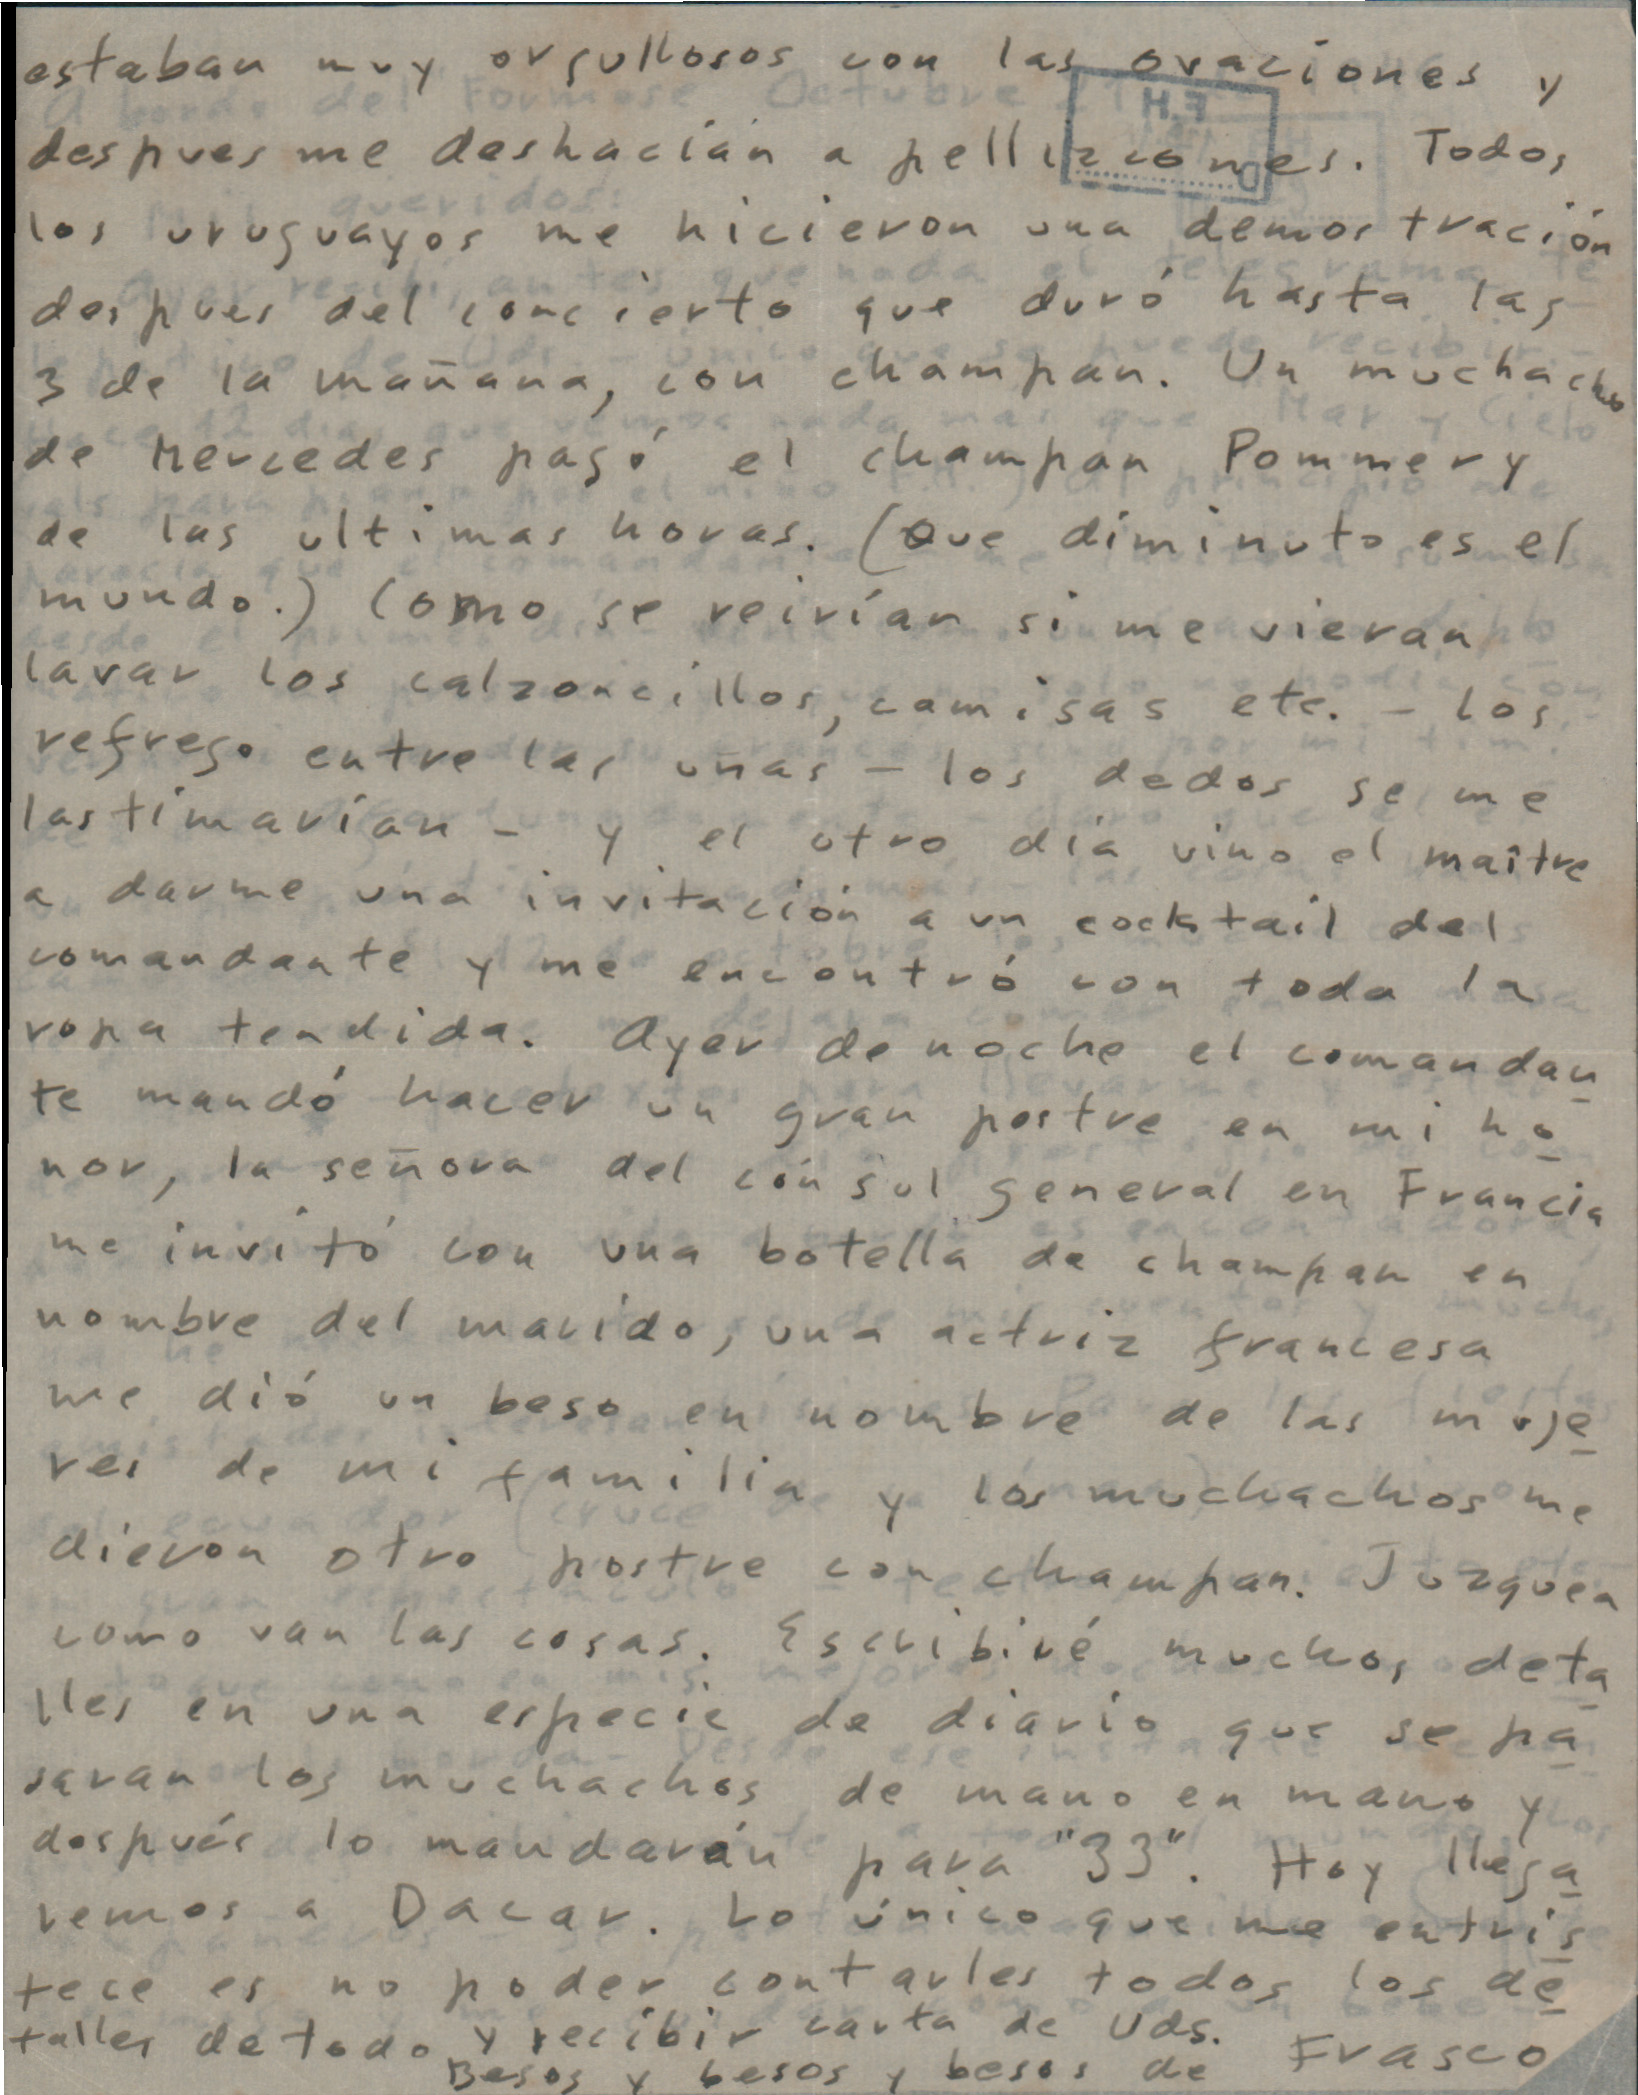 estaban muy orgullosos con las ovaciones y
despues me deshacían a pellizcones. Todos
los uruguayos me hicieron una demostración
despues del concierto que duró hasta las
3 de la mañana, con champan. Un muchacho
de Mercedes pagó el champan Pommery
de las ultimas horas. (Que diminuto es el
mundo.) Como se reirían si me vieran
lavar los calzoncillos, camisas etc. – los
refrego entre las uñas – los dedos se me
lastimarían – y el otro día vino el maître
a darme una invitación a un cocktail del
comandante y me encontró con toda la
ropa tendida. Ayer de noche el comandan
te mandó hacer un gran postre en mi ho
nor, la señora del cónsul general en Francia
me invitó con una botella de champan en
nombre del marido, una actriz francesa
me dió un beso en nombre de las muje
res de mi familia y los muchachos me
dieron otro postre con champan. Juzguen
como van las cosas. Escribiré muchos deta
lles en una especie de diario que se pa
saran los muchachos de mano en mano y
después lo mandarán para "33". Hoy llega
remos a Dacar. Lo único que me entris
tece es no poder contarles todos los de
talles de todo y recibir carta de Uds.
Besos y besos y besos de Frasco